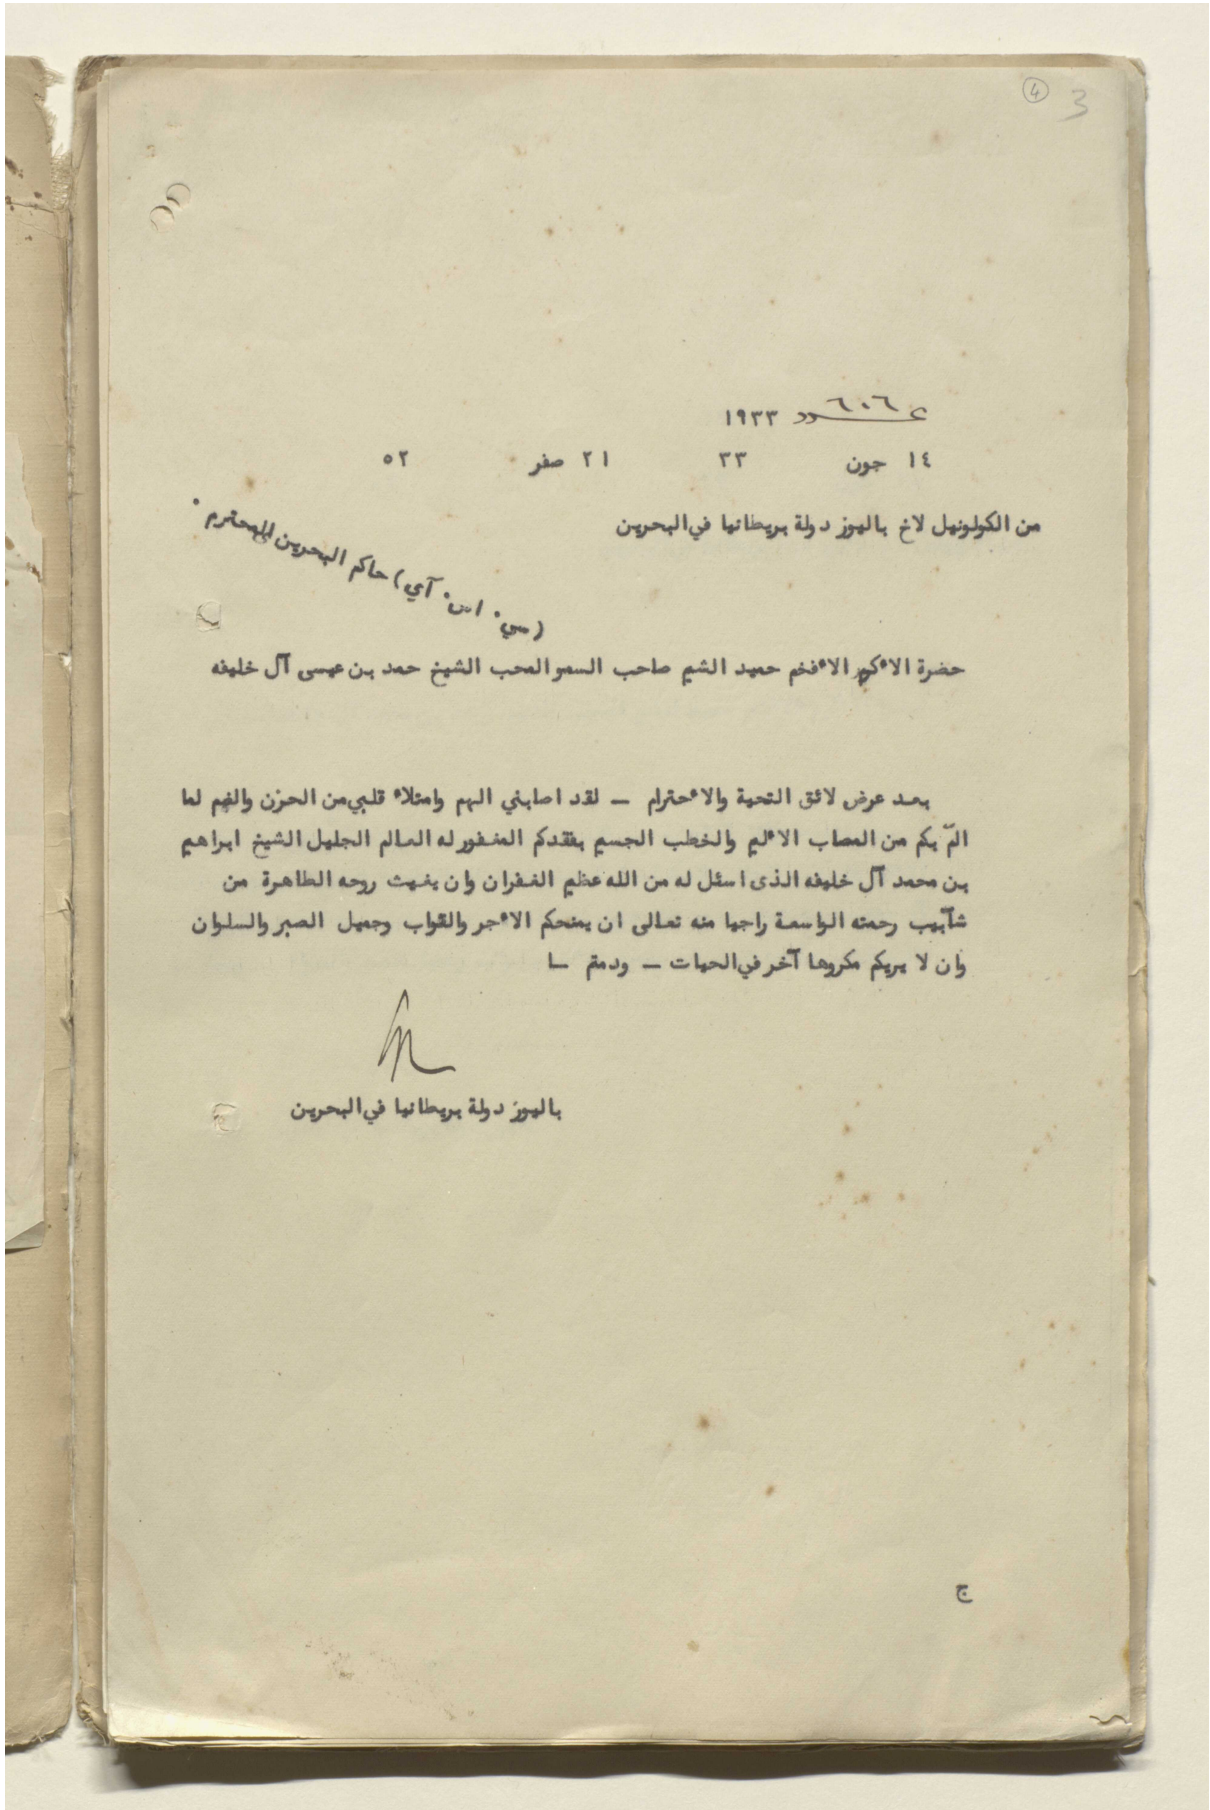 ④ 3
عـــدد ٦٠٦ ١٩٣٣
١٤ جون ٣٣ ٢١ صفر ٥٢
من الكولونيل لاخ باليوز دولة بريطانيا في البحرين
حضرة الاٴكرم الاٴفخم حميد الشيم صاحب السمو المحب الشيخ حمد بن عيسى آل خليفه
(سي. اس. آي) حاكم البحرين المحترم.
بعد عرض لائق التحية والاٴحترام — لقد اصابني الهم وامتلاٴ قلبي من الحزن والغم لما
المّ بكم من المصاب الاٴليم والخطب الجسيم بفقدكم المغفور له العالم الجليل الشيخ ابراهيم
بن محمد آل خليفه الذى اسئل له من الله عظيم الغفران وان يغيث روحه الطاهرة من
شآبيب رحمته الواسعة راجيا منه تعالى ان يمنحكم الاٴجر والثواب وجميل الصبر والسلوان
وان لا يريكم مكروها آخر في الحيات — ودمتم ــا
باليوز دولة بريطانيا في البحرين
ج